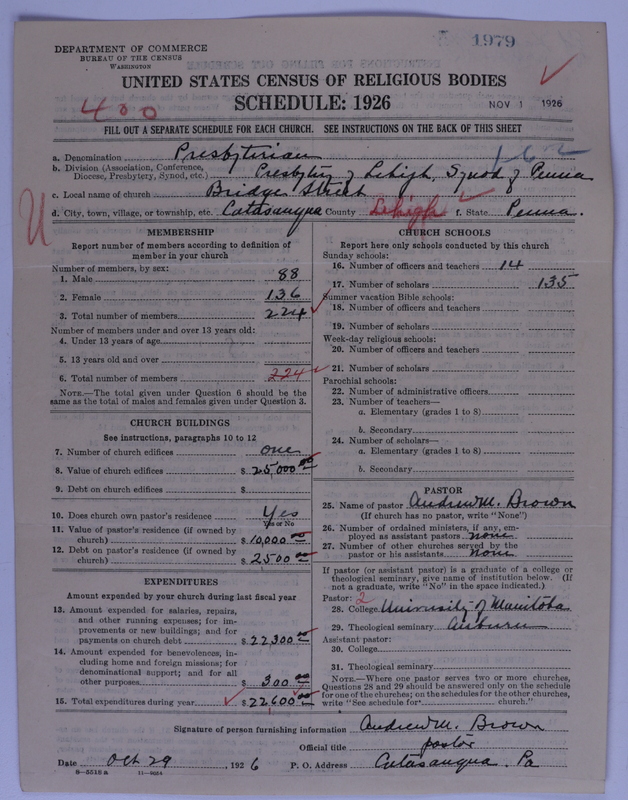 1979
DEPARTMENT OF COMMERCE
BUREAU OF THE CENSUS
WASHINGTON
UNITED STATES CENSUS OF RELIGIOUS BODIES
SCHEDULE: 1926
400
NOV 1 1926
FILL OUT A SEPARATE SCHEDULE FOR EACH CHURCH. SEE INSTRUCTIONS ON THE BACK OF THIS SHEET
a. Denomination Presbyterian
b. Division (Association, Conference, Diocese, Presbytery, Synod, etc.) Presbytery of Lehigh, Synod of Penna
c. Local name of church Bridge Street
d. City, town, village, or township, etc. Catasauqua County Lehigh f. State Penna.
U
MEMBERSHIP
Report number of members according to definition of
member in your church
Number of members, by sex:
1. Male 88
2. Female 136
3. Total number of members 224
Number of members under and over 13 years old:
4. Under 13 years of age
5. 13 years old and over
6. Total number of members 224
NOTE.—The total given under Question 6 should be the
same as the total of males and females given under Question 3.
CHURCH BUILDINGS
See instructions, paragraphs 10 to 12
7. Number of church edifices one
8. Value of church edifices $25,000.00
9. Debt on church edifices $
10. Does church own pastor's residence Yes
Yes or No
11. Value of pastor's residence (if owned by
church) $10,000.00
12. Debt on pastor's residence (if owned by
church) $2500.00
EXPENDITURES
Amount expended by your church during last fiscal year
13. Amount expended for salaries, repairs,
and other running expenses; for im-
provements or new buildings; and for
payments on church debt $22,300.00
14. Amount expended for benevolences, in-
cluding home and foreign missions; for
denominational support; and for all
other purposes $300.00
15. Total expenditures during year $22600.00
CHURCH SCHOOLS
Report here only schools conducted by this church
Sunday schools:
16. Number of officers and teachers 14
17. Number of scholars 135
Summer vacation Bible schools:
18. Number of officers and teachers
19. Number of scholars
Week-day religious schools:
20. Number of officers and teachers
21. Number of scholars
Parochial schools:
22. Number of administrative officers
23. Number of teachers—
a. Elementary (grades 1 to 8)
b. Secondary
24. Number of scholars—
a. Elementary (grades 1 to 8)
b. Secondary
PASTOR
25. Name of pastor Andrew M. Brown
(If church has no pastor, write "None")
26. Number of ordained ministers, if any, em-
ployed as assistant pastors none
27. Number of other churches served by the
pastor or his assistants none
If pastor (or assistant pastor) is a graduate of a college or
theological seminary, give name of institution below. (If
not a graduate, write "No" in the space indicated.)
Pastor: 2
28. College University of Manitoba
29. Theological seminary Auburn
Assistant pastor:
30. College
31. Theological seminary
NOTE.—Where one pastor serves two or more churches,
Questions 28 and 29 should be answered only on the schedule
for one of the churches; on the schedules for the other churches,
write "See schedule for church."
Signature of person furnishing information Andrew M. Brown
Official title pastor
Date Oct 29, 1926 P. O. Address Catasauqua Pa
8—5518 a 11—9024